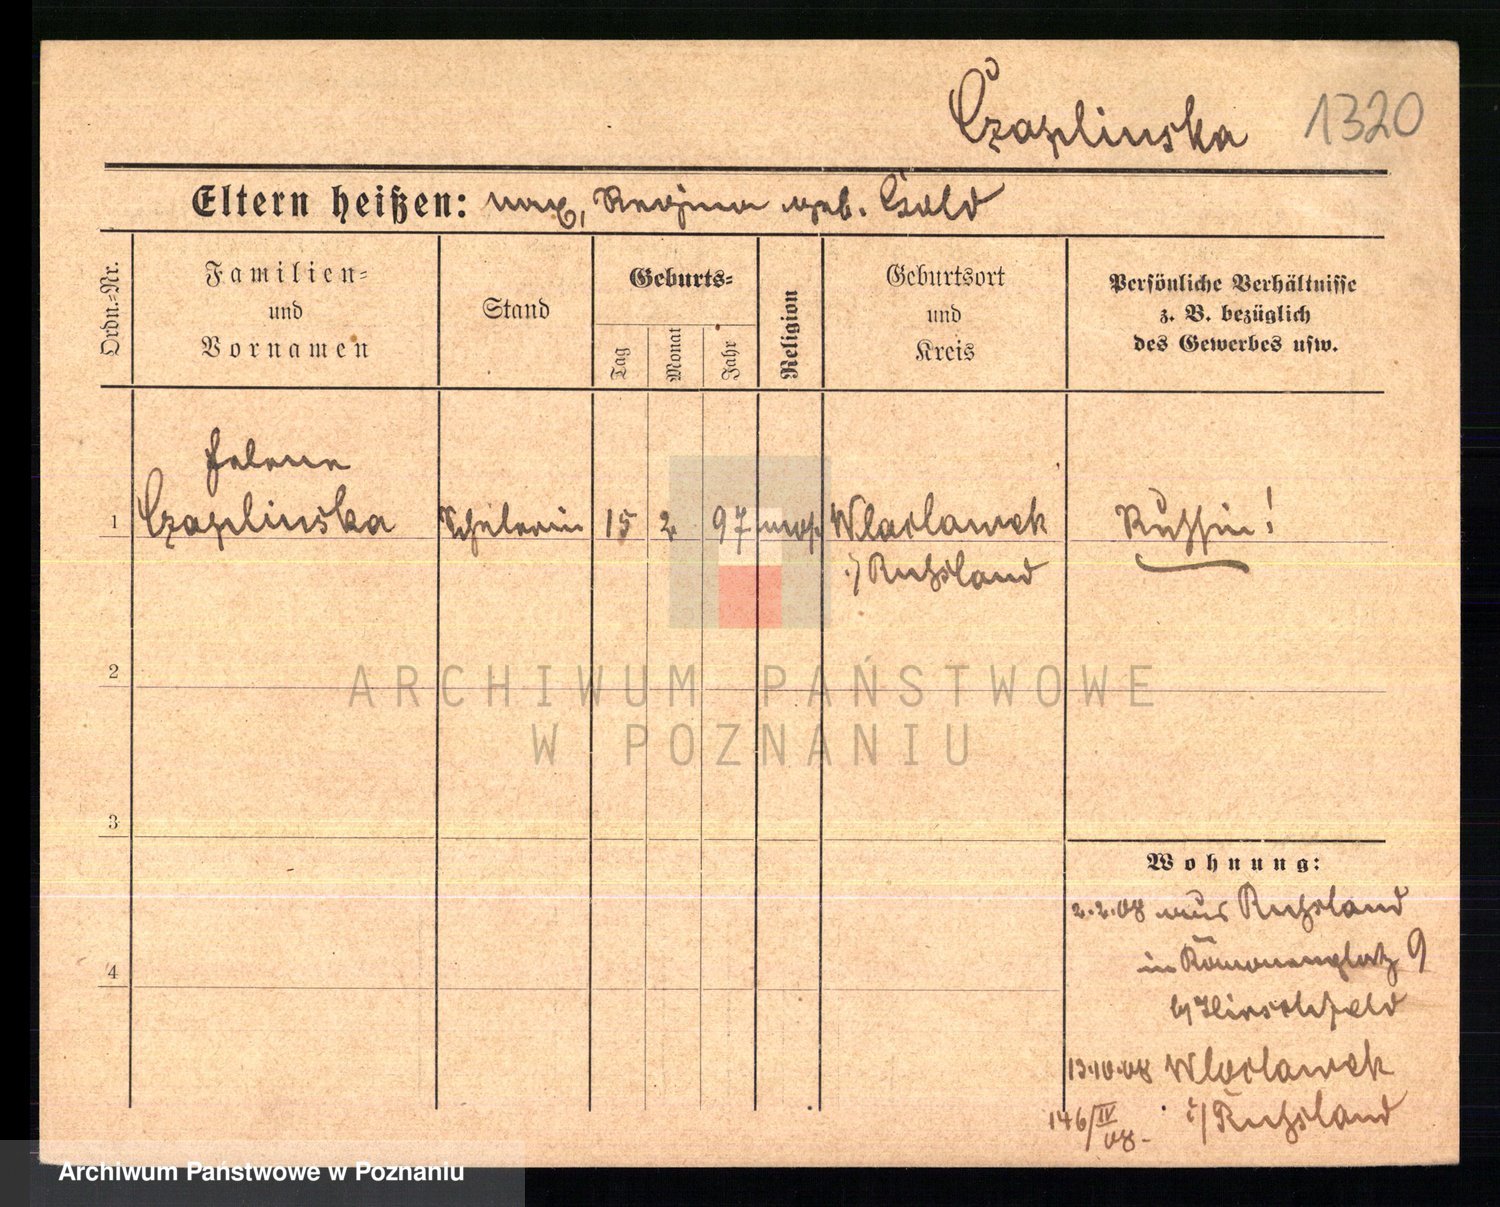 Czaplinska 1320
Eltern heißen: Max, Regina geb. Gold
Ordn.-Nr.
Familien-
und
Vornamen
Stand
Geburts-
Tag
Monat
Jahr
Religion
Geburtsort
und
Kreis
Persönliche Verhältnisse
z. B. bezüglich
des Gewerbes usw.
Helene
1 Czaplinska Schülerin 15 2 97 mos. Wloclawek Russin!
i/ Russland
2
ARCHIWUM PAŃSTWOWE
W POZNANIU
3
Wohnung:
2.2.08 aus Russland
in Kanonenplatz 9
b/ Hirschfeld
4
13.10.08 Wloclawek
i/ Russland
146/IV
08.
Archiwum Państwowe w Poznaniu